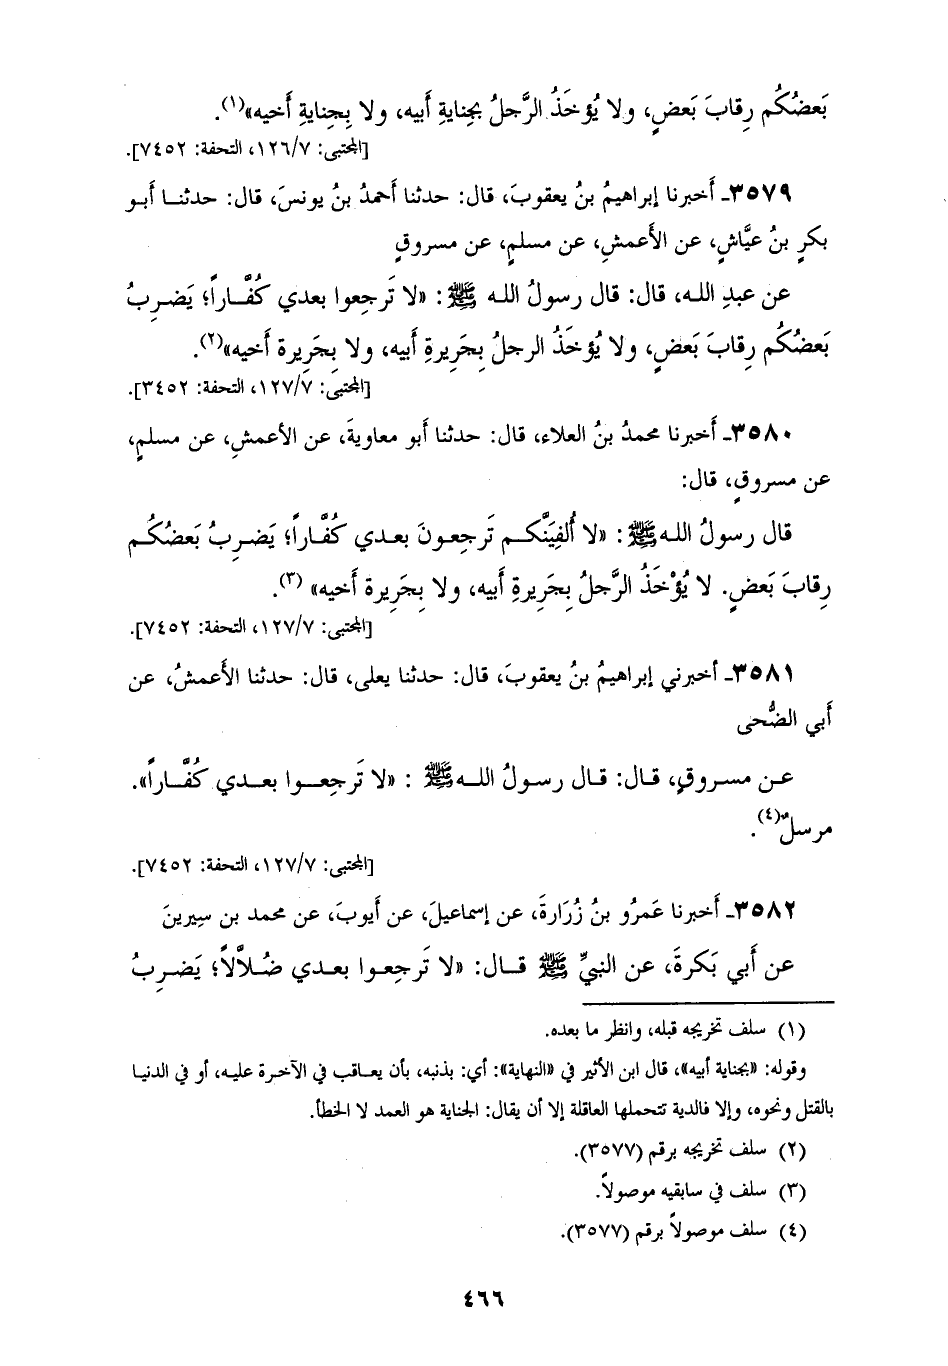 بَعضُكُم رِقابَ بَعضٍ، ولا يُؤخَذُ الرَّجلُ بجِنايةِ أَبيه، ولا بِجِنايةِ أَخيه»(١).
[المجتبى: ١٢٦/٧، التحفة: ٧٤٥٢].
٣٥٧٩ـ أَخبرنا إبراهيمُ بنُ يعقوبَ، قال: حدثنا أَحمدُ بنُ يونسَ، قال: حدثنا أَبو
بكرٍ بنُ عيَّاشٍ، عن الأَعمشِ، عن مسلمٍ، عن مسروقٍ
عن عبدِ الله، قال: قال رسولُ الله ﷺ: «لا تَرجِعوا بعدي كُفَّاراً؛ يَضرِبُ
بَعضُكُم رِقابَ بَعضٍ، ولا يُؤخَذُ الرجلُ بِجَريرةِ أَبيه، ولا بِجَرِيرة أَخيه»(٢).
[المجتبى: ١٢٧/٧، التحفة: ٣٤٥٢].
٣٥٨٠ـ أَخبرنا محمدُ بنُ العلاء، قال: حدثنا أَبو معاويةَ، عن الأعمشِ، عن مسلمٍ،
عن مسروقٍ، قال:
قال رسولُ الله ﷺ: «لا أُلفِيَنَّكم تَرجِعونَ بعدي كُفَّاراً؛ يَضرِبُ بَعضُكُم
رِقابَ بَعضٍ. لا يُؤْخَذُ الرَّجلُ بِجَرِيرةِ أَبيه، ولا بِجَرِيرة أَخيه» (٣).
[المجتبى: ١٢٧/٧، التحفة: ٧٤٥٢].
٣٥٨١ـ أخبرني إبراهيمُ بنُ يعقوبَ، قال: حدثنا يعلى، قال: حدثنا الأَعمشُ، عن
أَبي الضُّحى
عن مسروقٍ، قال: قال رسولُ الله ﷺ : «لا تَرجِعوا بعدي كُفَّاراً».
مرسلٌ(٤).
[المجتبى: ١٢٧/٧، التحفة: ٧٤٥٢].
٣٥٨٢ـ أَخبرنا عَمرُو بنُ زُرَارةَ، عن إسماعيلَ، عن أَيوبَ، عن محمد بن سِيرينَ
عن أَبي بَكرةَ، عن النبيِّ ﷺ قال: «لا تَرجِعوا بعدي ضُلاَّلاً؛ يَضرِبُ
(١) سلف تخريجه قبله، وانظر ما بعده.
وقوله: «بجناية أبيه»، قال ابن الأثير في «النهاية»: أي: بذنبه، بأن يعاقب في الآخرة عليه، أو في الدنيا
بالقتل ونحوه، وإلا فالدية تتحملها العاقلة إلا أن يقال: الجناية هو العمد لا الخطأ.
(٢) سلف تخريجه برقم (٣٥٧٧).
(٣) سلف في سابقيه موصولاً.
(٤) سلف موصولاً برقم (٣٥٧٧).
٤٦٦